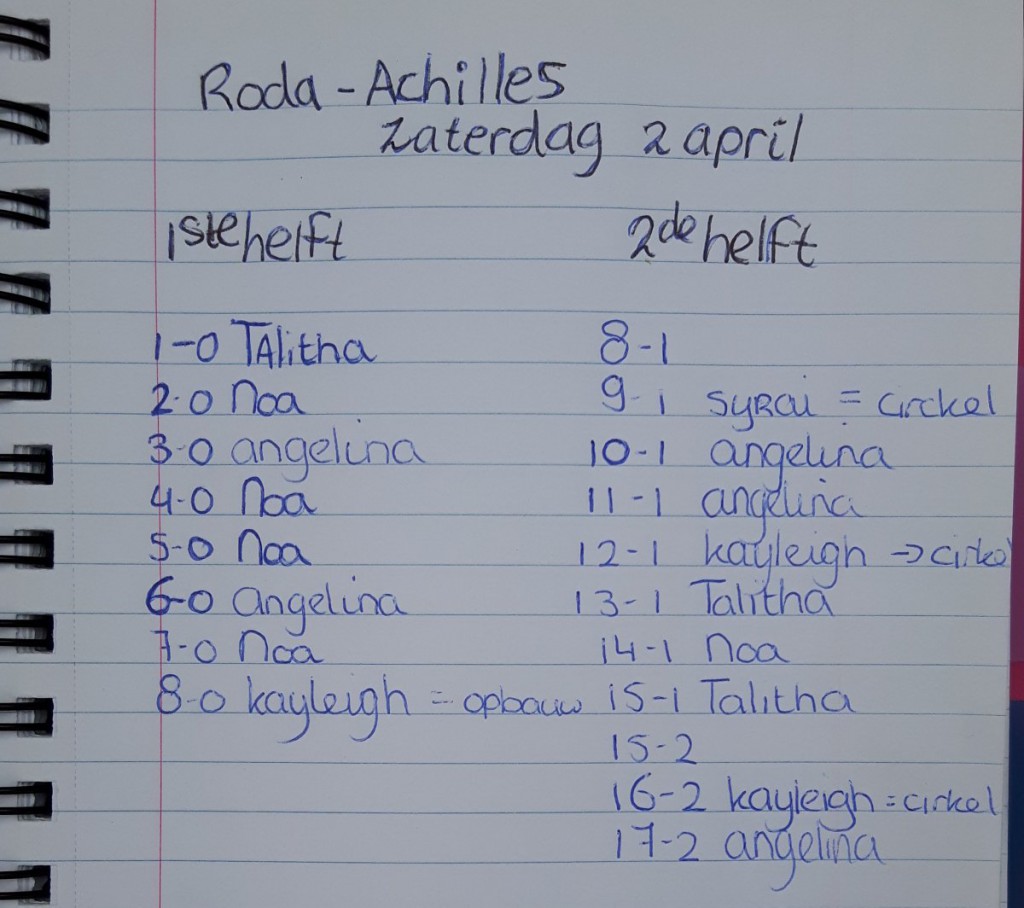 Roda - Achilles
Zaterdag 2 april
1ste helft
2de helft
1-0 TAlitha
2-0 Noa
3-0 angelina
4-0 Noa
5-0 Noa
6-0 angelina
7-0 Noa
8-0 kayleigh = opbouw
8-1
9-1 SYRAi = circkel
10-1 angelina
11-1 angelina
12-1 kayleigh → cirkel
13-1 Talitha
14-1 Noa
15-1 Talitha
15-2
16-2 kayleigh = cirkel
17-2 angelina